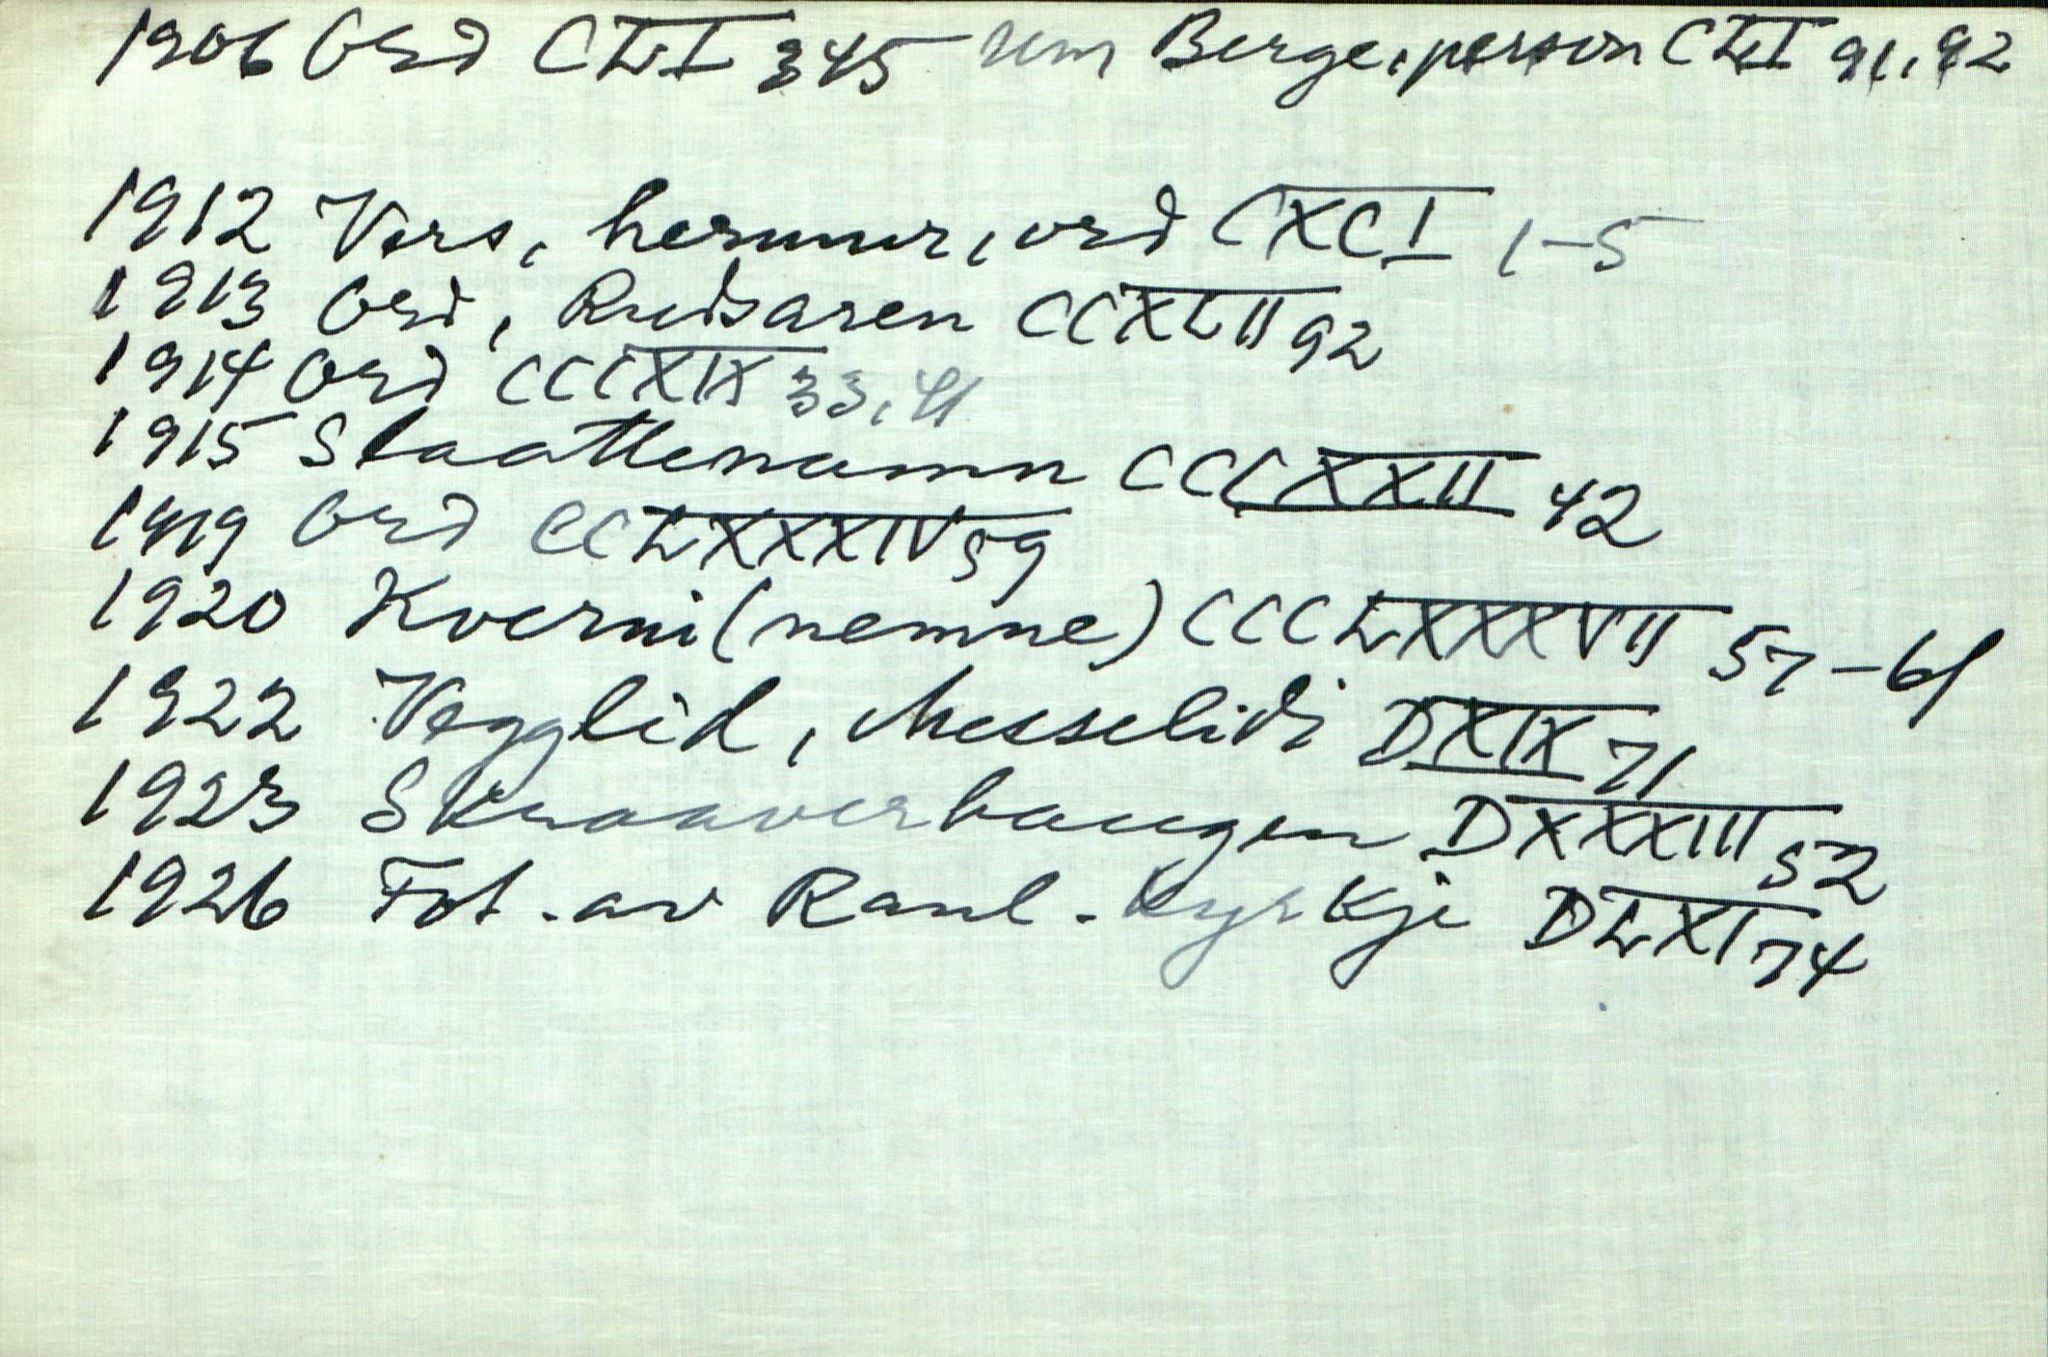 1906 Ord CLI 345 um Berge, person CLI 91, 92
1912 Vers, hermur, ord CXCI 1-5
1913 Ord, Rudsaren CCXLII 92
1914 Ord CCCXIX 33, 41
1915 Slaattenamn CCCXXII 42
1919 Ord CCLXXXIV 59
1920 Kverni (nemne) CCCLXXXVII 57-61
1922 Vegglid, Messelidi DXIX 71
1923 Skraaverhaugen DXXXIII 52
1926 Fot. av Raul. kyrkje DLXI 74